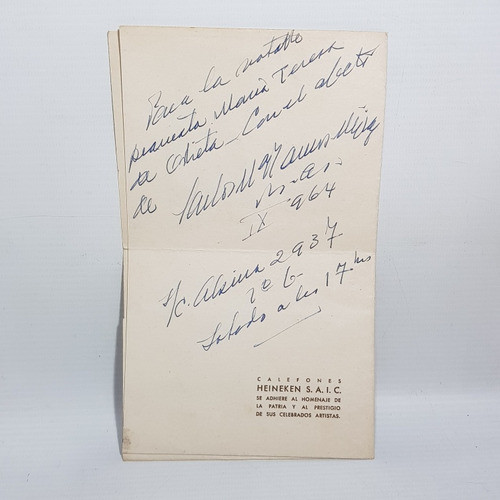 Para la notable
pianista María Teresa
de Oñeta - Con el afecto
de Carlos
IX 964
S/c. Alsina 2937
1º G
Sábado a las 17 hs
CALEFONES
HEINEKEN S.A.I.C.
SE ADHIERE AL HOMENAJE DE
LA PATRIA Y AL PRESTIGIO
DE SUS CELEBRADOS ARTISTAS.